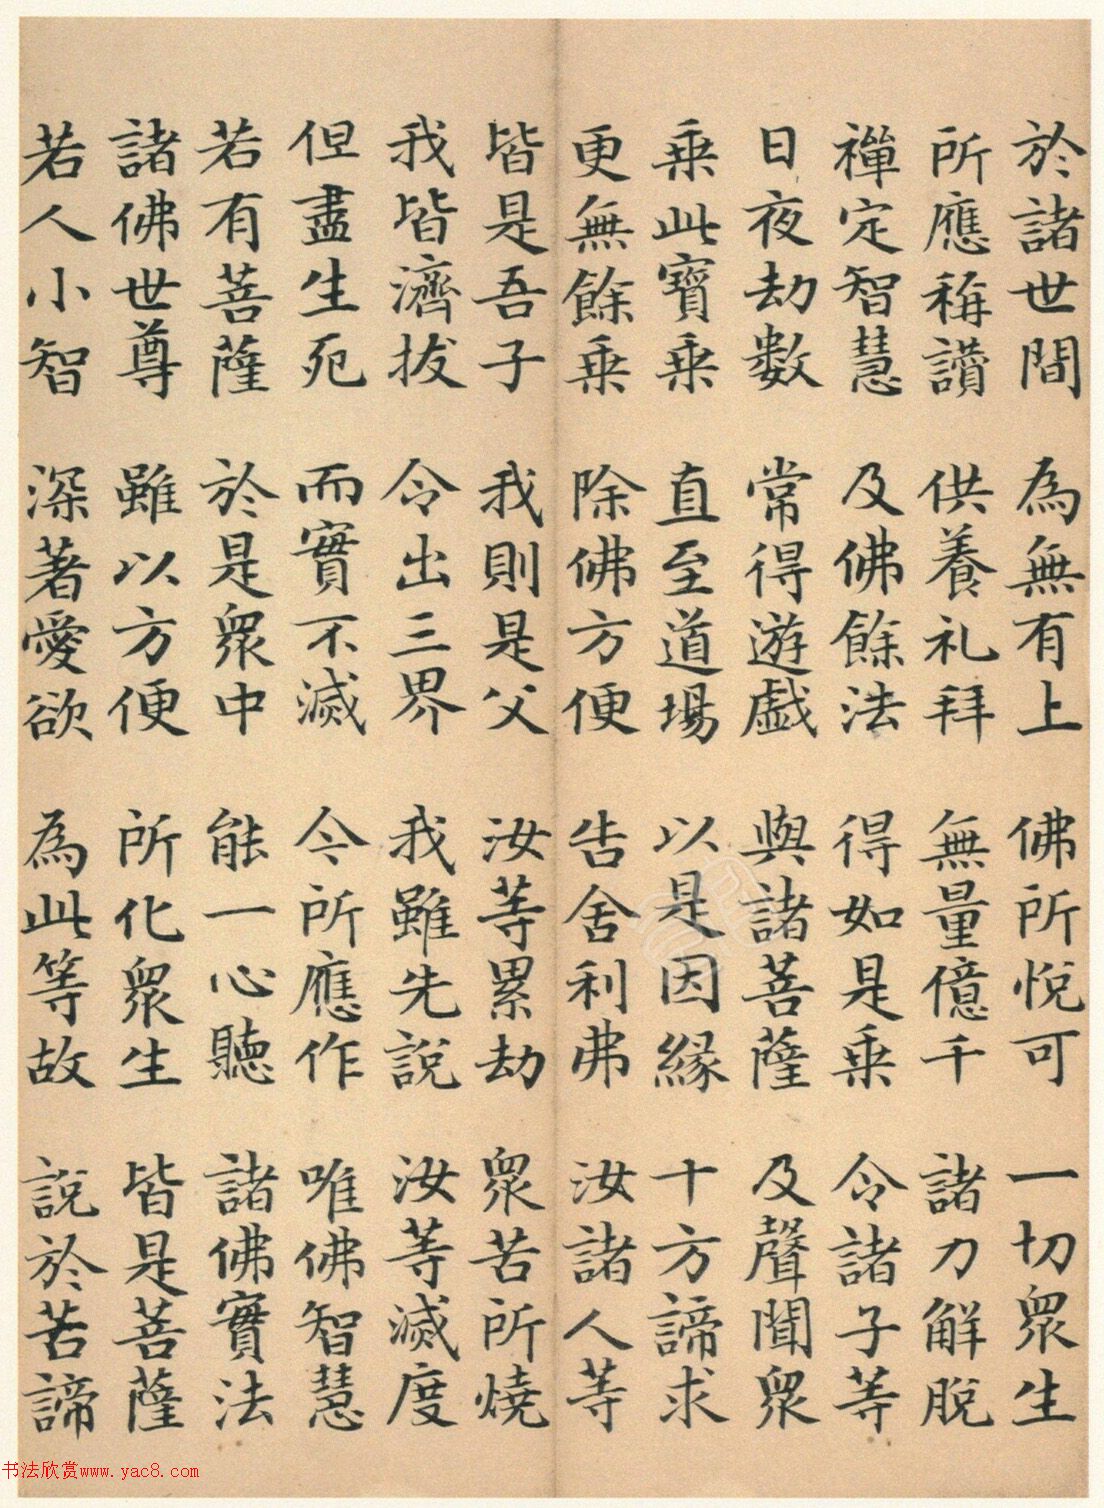 於諸世間 為無有上 佛所悅可 一切眾生
所應稱讚 供養礼拜 無量億千 諸力解脫
禪定智慧 及佛餘法 得如是乘 令諸子等
日夜劫數 常得遊戲 與諸菩薩 及聲聞眾
乘此寶乘 直至道場 以是因緣 十方諦求
更無餘乘 除佛方便 告舍利弗 汝諸人等
皆是吾子 我則是父 汝等累劫 眾苦所燒
我皆濟拔 令出三界 我雖先說 汝等滅度
但盡生死 而實不滅 今所應作 唯佛智慧
若有菩薩 於是眾中 能一心聽 諸佛實法
諸佛世尊 雖以方便 所化眾生 皆是菩薩
若人小智 深著愛欲 為此等故 說於苦諦
书法欣赏www.yac8.com